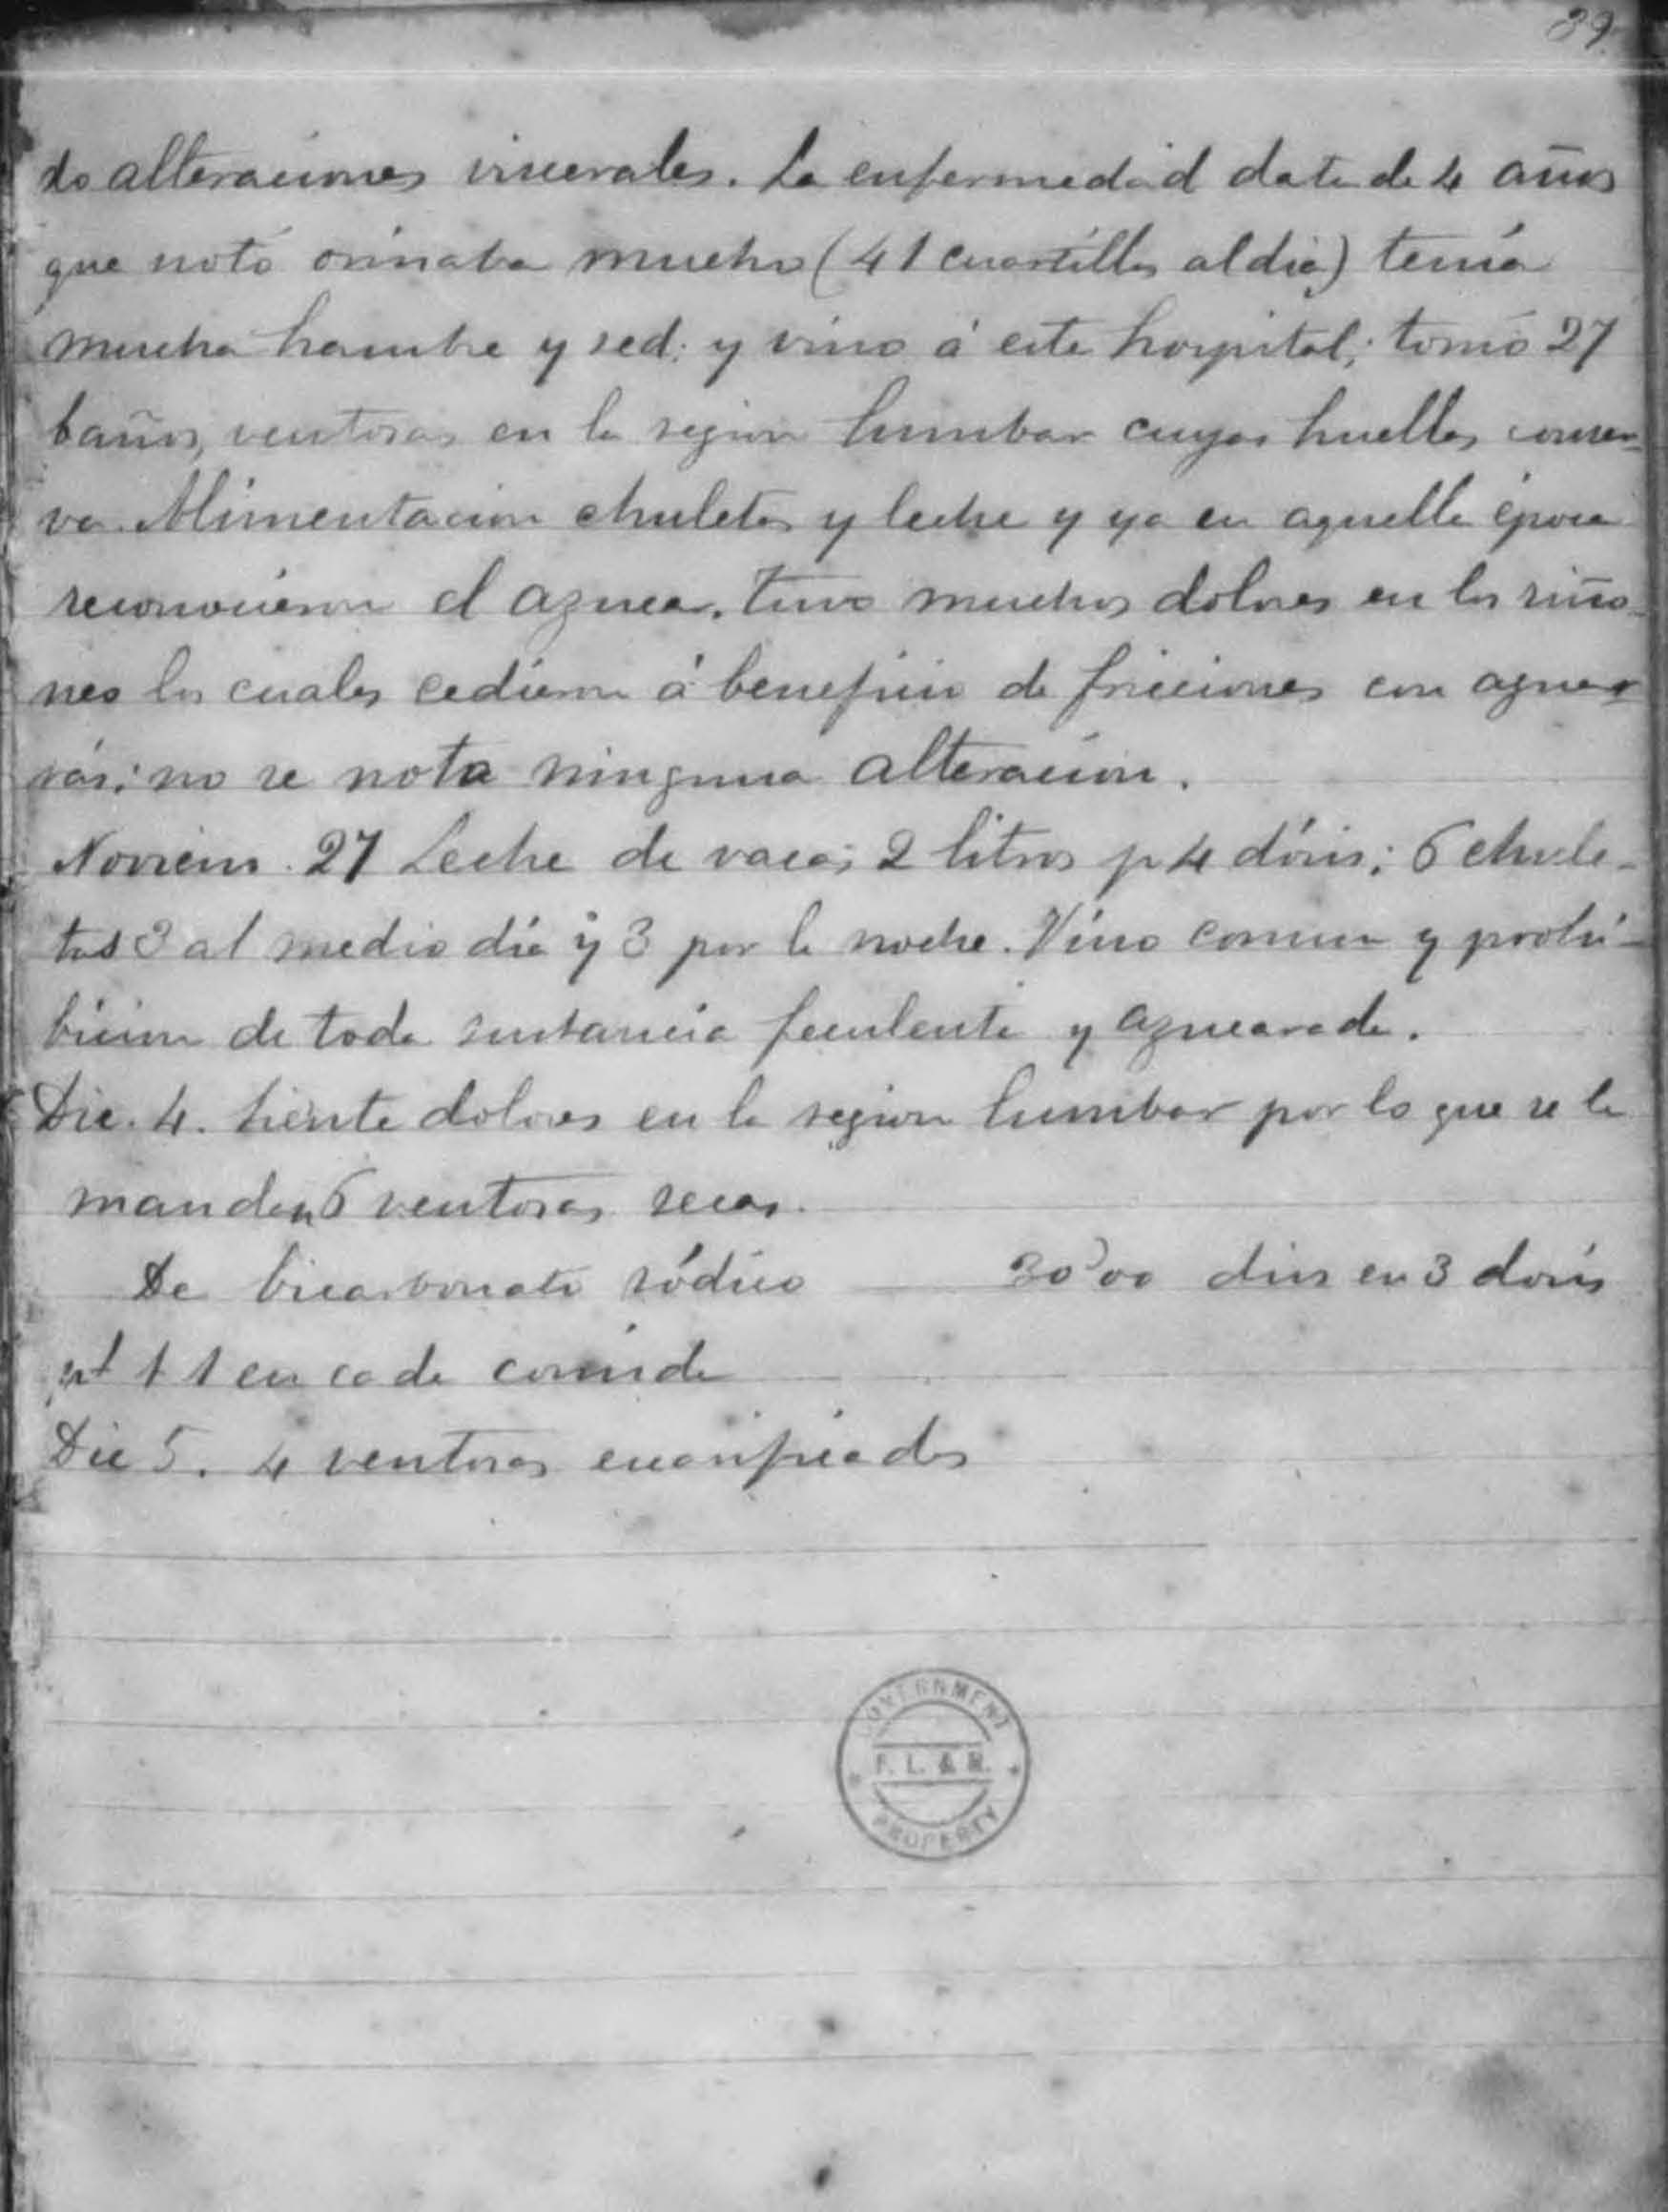 39.
do alteraciones viscerales. La enfermedad data de 4 años
que notó orinaba mucho (41 cuartillos al dia) tenía
mucha hambre y sed; y vino á este hospital; tomó 27
baños, ventosas en la region lumbar cuyas huellas conser-
va. Alimentacion chuletas y leche y ya en aquella época
reconocieron el azucar. Tuvo muchos dolores en los riño-
nes los cuales cedieron á beneficio de fricciones con aguar-
rás; no se nota ninguna alteración.
Noviem. 27 Leche de vaca; 2 litros p 4 dósis; 6 chule-
tas 3 al medio día y 3 por la noche. Vino comun y prohi-
bicion de toda sustancia feculente y azucarada.
Dic. 4. Siente dolores en la region lumbar por lo que se le
mandan 6 ventosas secas.
De bicarbonato sódico 30'00 divs en 3 dosis
pt 1 1 en cada comida
Dic 5. 4 ventosas escarificadas
GOVERNMENT
P. L. & M.
PROPERTY